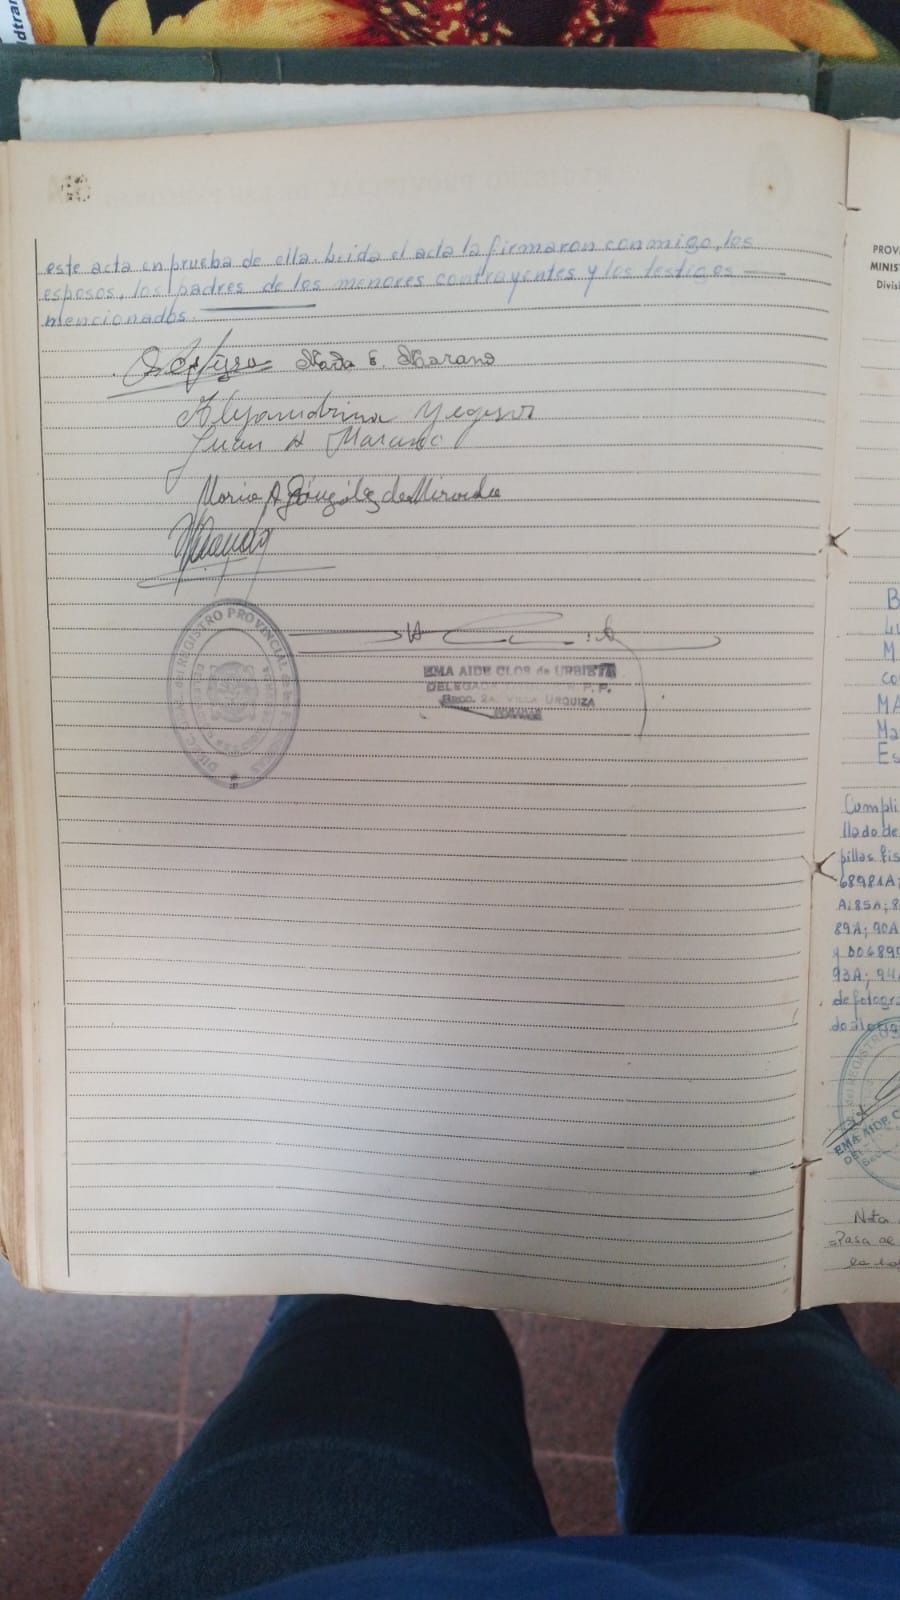 este acta en prueba de ella. Leida el acta la firmaron conmigo, los
esposos, los padres de los menores contrayentes y los testigos
mencionados.
E. Marano
Alejandrina
Juan A Marano
Maria A González de Miranda
REGISTRO PROVINCIAL de las
EMA AIDE CLOS de URBIETA
DELEGADA
SECC. 2A. VILLA URQUIZA
PROV
MINIS
Divis
B
Lu
M
co
MA
Ma
Es
Cumpli
llado de
pillas fis
68981A;
A;85A;8
89A; 90A
y 006899
93A; 94A
de fotogra
REGISTRO
EMA AIDE C
Nota
Pasa al